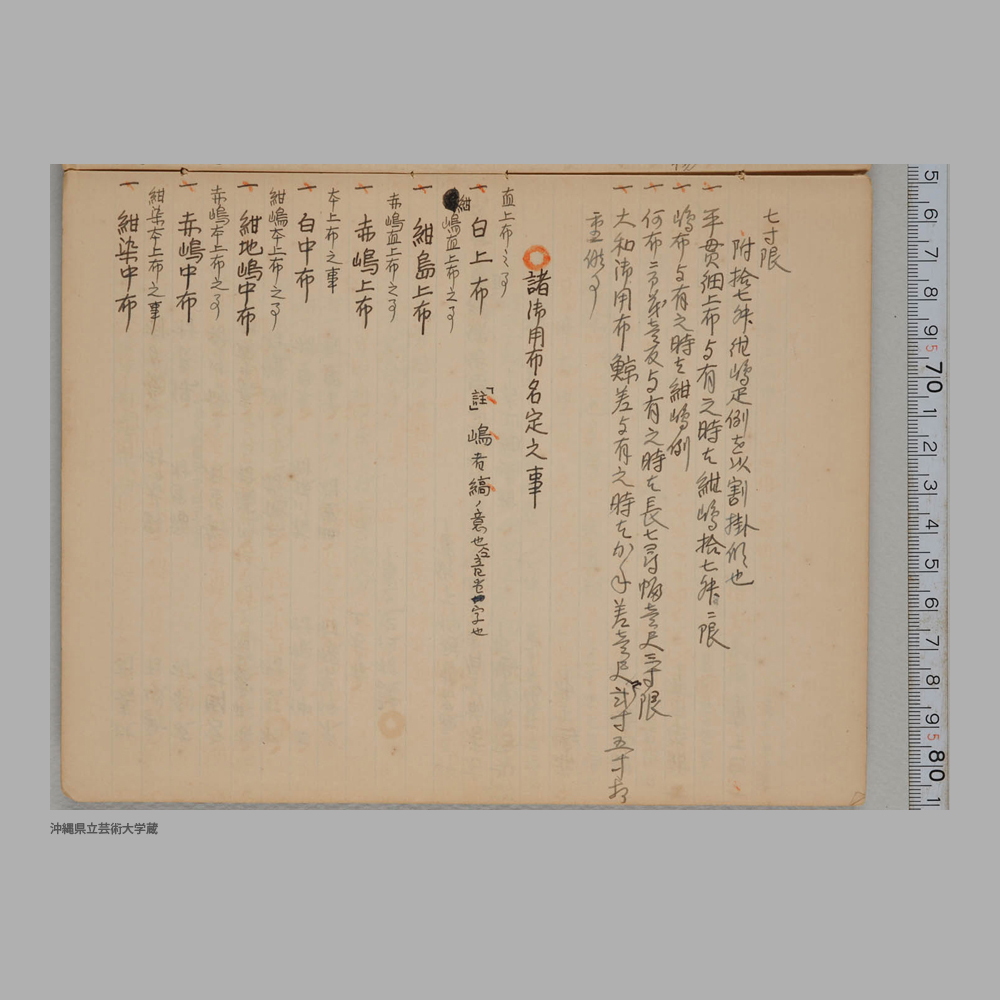 七寸限
附拾七舛紺嶋疋例を以割掛候也
一 平貫細上布与有之時を紺嶋拾七舛ニ限
一 嶋布与有之時を紺嶋例
一 何布ニ而茂壱反与有之時を長七尋幅壱尺三寸限
一 大和御用布鯨差与有之時をかね差壱尺弐寸五寸
重候事
諸御用布名定之事
直上布之事
一 白上布
「註」嶋者縞ノ意也 字也
紺嶋直上布之事
一 紺島上布
赤嶋直上布之事
一 赤嶋上布
本上布之事
一 白中布
紺嶋本上布之事
一 紺地嶋中布
赤嶋本上布之事
一 赤嶋中布
紺染本上布之事
一 紺染中布
5 6 7 8 9 5 70 1 2 3 4 5 6 7 8 9 5 80 1
沖縄県立芸術大学蔵